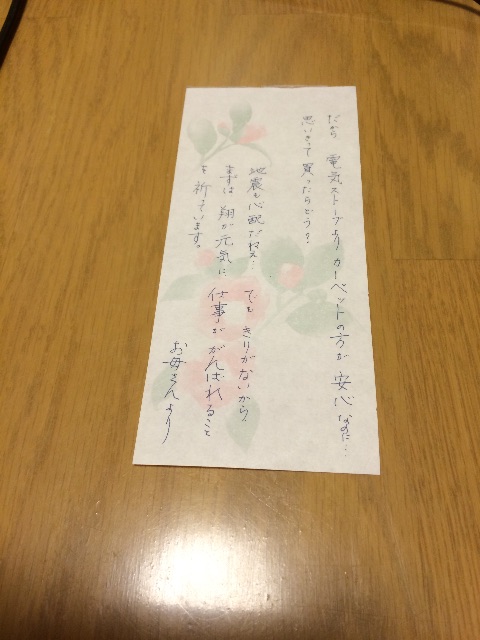 だから 電気ストーブより、カーペットの方が 安心なのに…
思いきって買ったらどう?
地震も心配だねえ… でも きりがないから、
まずは 翔が元気に 仕事が がんばれること
を祈っています。
お母さんより